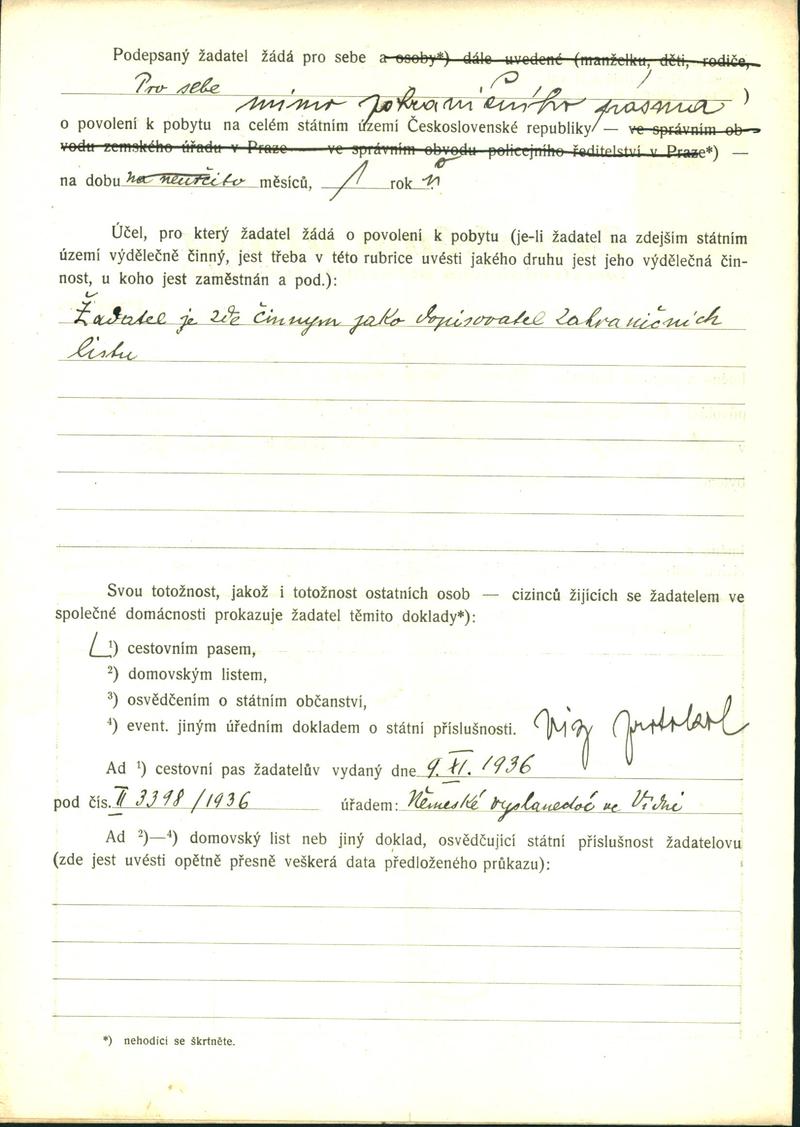 Podepsaný žadatel žádá pro sebe a osoby*) dále uvedené (manželku, děti, rodiče,
Pro sebe
mimo pohraničního pásma )
o povolení k pobytu na celém státním území Československé republiky — ve správním ob-
vodu zemského úřadu v Praze — ve správním obvodu policejního ředitelství v Praze*) —
na dobu na neurčito měsíců, 1 rok
Účel, pro který žadatel žádá o povolení k pobytu (je-li žadatel na zdejším státním
území výdělečně činný, jest třeba v této rubrice uvésti jakého druhu jest jeho výdělečná čin-
nost, u koho jest zaměstnán a pod.):
Žadatel je zde činným jako dopisovatel zahraničních
listu
Svou totožnost, jakož i totožnost ostatních osob — cizinců žijících se žadatelem ve
společné domácnosti prokazuje žadatel těmito doklady*):
¹) cestovním pasem,
²) domovským listem,
³) osvědčením o státním občanství,
⁴) event. jiným úředním dokladem o státní příslušnosti. viz protokol
Ad ¹) cestovní pas žadatelův vydaný dne 9. XI. 1936
pod čís. II 3398/1936 úřadem: Německé vyslanectví ve Vídni
Ad ²)—⁴) domovský list neb jiný doklad, osvědčující státní příslušnost žadatelovu
(zde jest uvésti opětně přesně veškerá data předloženého průkazu):
*) nehodící se škrtněte.